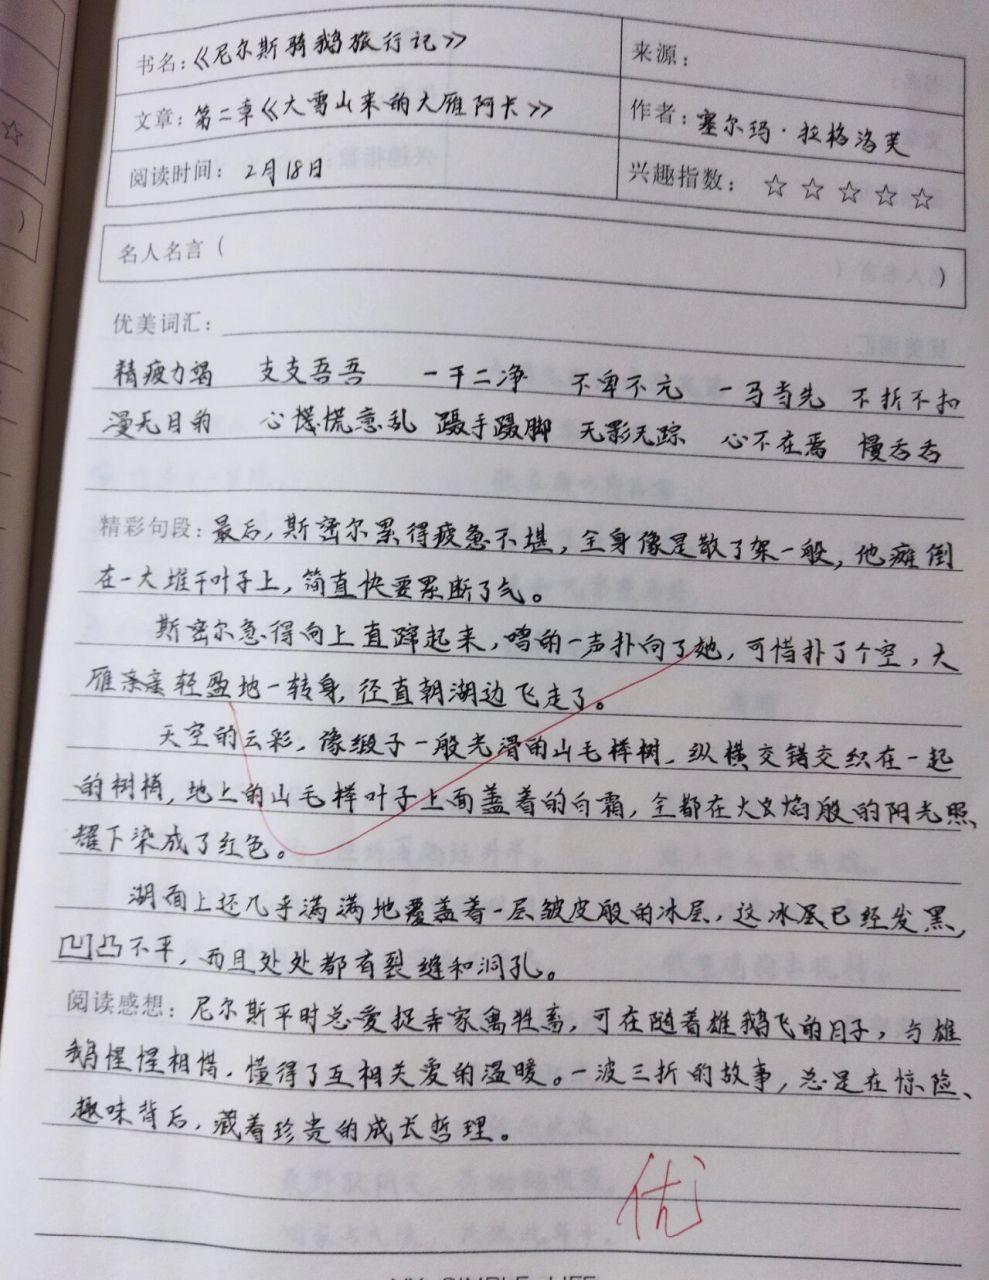 书名：《尼尔斯骑鹅旅行记》
来源：
文章：第二章《大雪山来的大雁阿卡》
作者：塞尔玛·拉格洛芙
阅读时间： 2月18日
兴趣指数：☆☆☆☆☆
名人名言（ ）
优美词汇：
精疲力竭 支支吾吾 一干二净 不卑不亢 一马当先 不折不扣
漫无目的 心慌意乱 蹑手蹑脚 无影无踪 心不在焉 慢吞吞
精彩句段：最后，斯密尔累得疲惫不堪，全身像是散了架一般，他瘫倒
在一大堆干叶子上，简直快要累断了气。
斯密尔急得向上直蹿起来，嗖的一声扑向了她，可惜扑了个空，大
雁亲亲轻盈地一转身，径直朝湖边飞走了。
天空的云彩，像缎子一般光滑的山毛榉树，纵横交错交织在一起
的树梢，地上的山毛榉叶子上面盖着的白霜，全都在火焰般的阳光照
耀下染成了红色。
湖面上还几乎满满地覆盖着一层皱皮般的冰层，这冰层已经发黑，
凹凸不平，而且处处都有裂缝和洞孔。
阅读感想：尼尔斯平时总爱捉弄家禽牲畜，可在随着雄鹅飞的日子，与雄
鹅惺惺相惜，懂得了互相关爱的温暖。一波三折的故事，总是在惊险、
趣味背后，藏着珍贵的成长哲理。
优